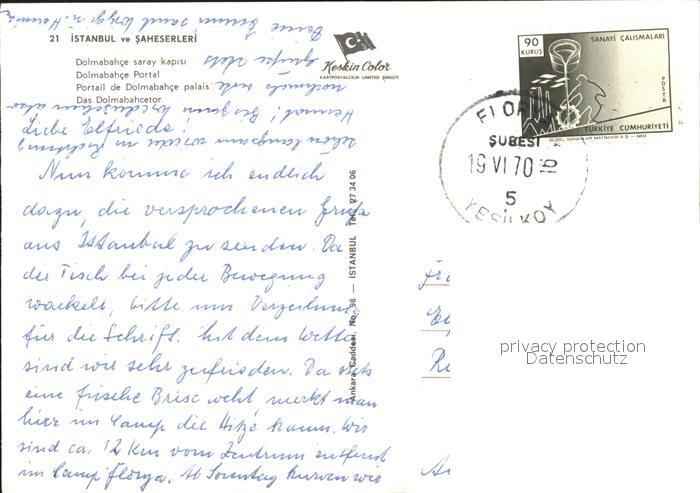 21 İSTANBUL ve ŞAHESERLERİ
Dolmabahçe saray kapısı
Dolmabahçe Portal
Portail de Dolmabahçe palais
Das Dolmabahcetor
Keskin Color
KARTPOSTALCILIK LIMITED ŞİRKETİ
Ankara Caddesi, No. 98 — İSTANBUL Tel: 27 34 06
90
KURUŞ
SANAYİ ÇALIŞMALARI
POSTA
TÜRKİYE CUMHURİYETİ
GÜZEL SANATLAR MATBAASI A.Ş. - 1969
ŞUBESİ
19 VI 70 16
5
YEŞİLKÖY
Liebe Elfriede!
Nun komme ich endlich
dazu, die versprochenen Grüße
aus Istanbul zu senden. Da
der Tisch bei jeder Bewegung
wackelt, bitte um Verzeihung
für die Schrift. Mit dem Wetter
sind wir sehr zufrieden. Da stets
eine frische Brise weht, merkt man
hier im Camp die Hitze kaum. Wir
sind ca. 12 km vom Zentrum entfernt
im Camp Florya. Ab Sonntag kurven wir
schön langsam wieder in Richtung
Heimat!
privacy protection
Datenschutz